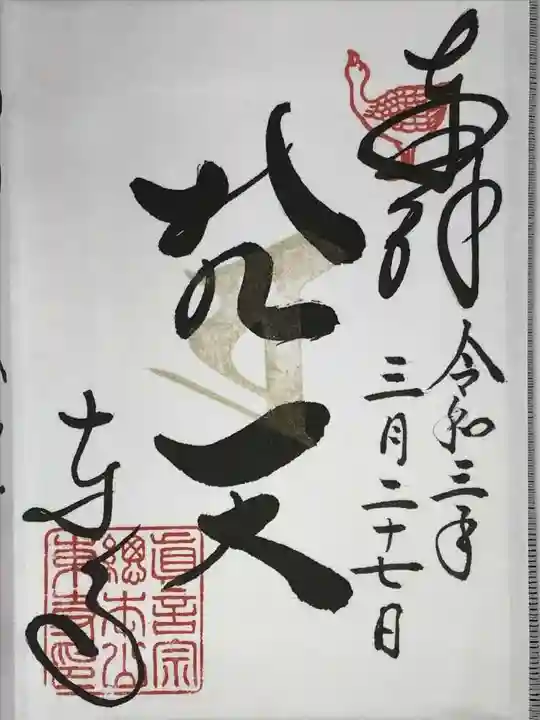 奉拝
令和三年
三月二十七日
梵天
東寺
眞言宗
總本山
東寺印